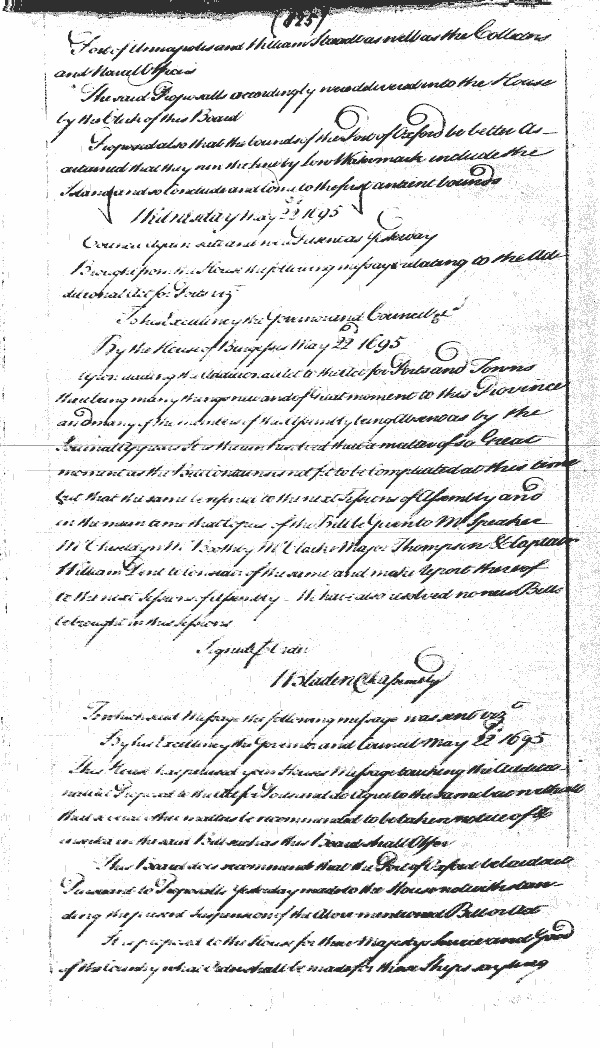 (825)
Port of Annapolis and William Stoadt as well as the Collectors
and Naval Officers
The said Proposalls accordingly were delivered into the House
by the Clerk of this Board
Proposed also that the bounds of the Port of Oxford be better As-
certained that they run the line by low Watermark include the
Island and so Conclude and Come to the first antient bounds
Wednesday May 22d 1695
Councill again sate and were Present as Yesterday
Brought from the House the following message relating to the Ad-
ditional Act for Ports vizt
To his Excellency the Governor and Councill &ca
By the House of Burgesses May 22d 1695
Upon reading the Additional Act to the Act for Ports and Towns
there being many things new and of Great moment to this Province
and many of the members of this Assembly being Absent as by the
Journal Appears It is therein Resolved that a matter of so Great
moment as the Bill Contains is not fit to be Compleated at this time
but that the same be referred to the next Sessions of Assembly and
in the mean time that Copies of the Bill be Given to Mr Speaker
Mr Cheseldyn Mr Boothby Mr Clarke Major Thompson & Captain
William Dent to Consider of the same and make Report thereof
to the next Sessions of Assembly – We have also resolved no new Bills
be brought in this Sessions
Signed p Order
W Bladen Clk Assembly
To which said Message the following message was sent vizt
By his Excellency the Governor and Councill May 22d 1695
This House has perused your Houses Message touching the Additio-
nal Proposal to the Act for Ports and do Agree to the same but withall
that several other matters be recommended to be taken notice of &
inserted in the said Bill such as this Board shall Offer
This Board does recommend that the Port of Oxford be laid out
Pursuant to Proposalls Yesterday made to the House notwithstan-
ding the present Suspension of the Above mentioned Bill or Act
It is proposed to the House for their Majestys Service and Good
of this Country what Order shall be made for those Ships say